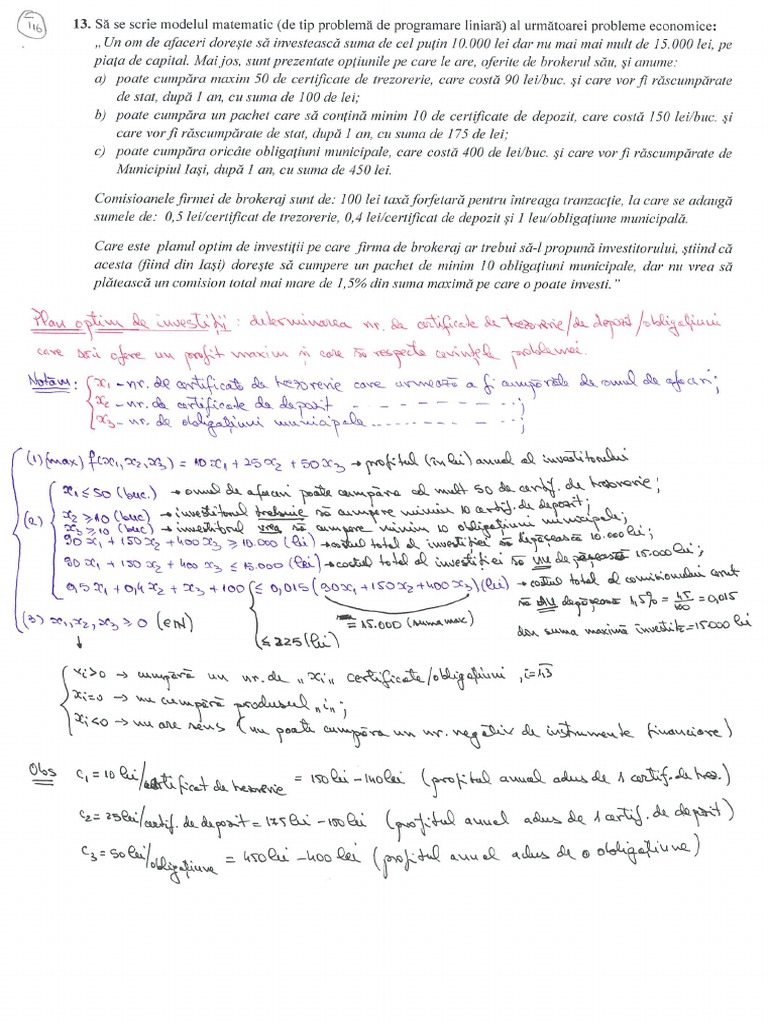 I
116
13. Să se scrie modelul matematic (de tip problemă de programare liniară) al următoarei probleme economice:
„Un om de afaceri dorește să investească suma de cel puțin 10.000 lei dar nu mai mai mult de 15.000 lei, pe
piața de capital. Mai jos, sunt prezentate opțiunile pe care le are, oferite de brokerul său, și anume:
a) poate cumpăra maxim 50 de certificate de trezorerie, care costă 90 lei/buc. și care vor fi răscumpărate
de stat, după 1 an, cu suma de 100 de lei;
b) poate cumpăra un pachet care să conțină minim 10 de certificate de depozit, care costă 150 lei/buc. și
care vor fi răscumpărate de stat, după 1 an, cu suma de 175 de lei;
c) poate cumpăra oricâte obligațiuni municipale, care costă 400 de lei/buc. și care vor fi răscumpărate de
Municipiul Iași, după 1 an, cu suma de 450 lei.
Comisioanele firmei de brokeraj sunt de: 100 lei taxă forfetară pentru întreaga tranzacție, la care se adaugă
sumele de: 0,5 lei/certificat de trezorerie, 0,4 lei/certificat de depozit și 1 leu/obligațiune municipală.
Care este planul optim de investiții pe care firma de brokeraj ar trebui să-l propună investitorului, știind că
acesta (fiind din Iași) dorește să cumpere un pachet de minim 10 obligațiuni municipale, dar nu vrea să
plătească un comision total mai mare de 1,5% din suma maximă pe care o poate investi.”
Plan optim de investiții: determinarea nr. de certificate de trezorerie/de depozit/obligațiuni
care să-i ofere un profit maxim și care să respecte cerințele problemei.
Notăm: x₁ – nr. de certificate de trezorerie care urmează a fi cumpărate de omul de afaceri;
x₂ – nr. de certificate de depozit - - - - - - - - ;
x₃ – nr. de obligațiuni municipale - - - - - - ;
(1) (max) f(x₁, x₂, x₃) = 10x₁ + 25x₂ + 50x₃ → profitul (în lei) anual al investitorului
(2) x₁ ≤ 50 (buc.) → omul de afaceri poate cumpăra cel mult 50 de certif. de trezorerie;
x₂ ≥ 10 (buc) → investitorul trebuie să cumpere minim 10 certif. de depozit;
x₃ ≥ 10 (buc) → investitorul vrea să cumpere minim 10 obligațiuni municipale;
90x₁ + 150x₂ + 400x₃ ≥ 10.000 (lei) → costul total al investiției să depășească 10.000 lei;
90x₁ + 150x₂ + 400x₃ ≤ 15.000 (lei) → costul total al investiției să NU depășească 15.000 lei;
0,5x₁ + 0,4x₂ + x₃ + 100 ≤ 0,015 (90x₁ + 150x₂ + 400x₃) (lei) → costul total al comisionului
să NU depășească 1,5% = 1,5/100 = 0,015
= 15.000 (suma max)
din suma maximă investită = 15000 lei
≤ 225 (lei)
(3) x₁, x₂, x₃ ≥ 0 (∈ N)
xᵢ > 0 → cumpără un nr. de „xᵢ” certificate/obligațiuni, i = 1,3
xᵢ = 0 → nu cumpără produsul „i”;
xᵢ < 0 → nu are sens (nu poate cumpăra un nr. negativ de instrumente financiare)
Obs c₁ = 10 lei/certificat de trezorerie = 150 lei – 140 lei (profitul anual adus de 1 certif. de trez.)
c₂ = 25 lei/certif. de depozit = 175 lei – 150 lei (profitul anual adus de 1 certif. de depozit)
c₃ = 50 lei/obligațiune = 450 lei – 400 lei (profitul anual adus de o obligațiune)